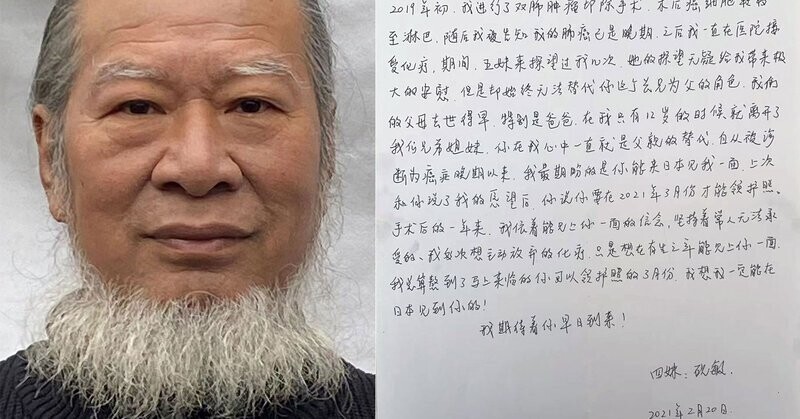 2019年初，我进行了双肺肿瘤切除手术，术后癌细胞
至淋巴，随后我被告知我的肺癌已是晚期，之后我一直在医院接
受化疗，期间，五妹来探望过我几次，她的探望无疑给我带来极
大的安慰，但是却始终无法替代你这长兄为父的角色，我们
的父母去世得早，特别是爸爸，在我只有12岁的时候就离开了
我们兄弟姐妹，你在我心中一直就是父亲的替代，自从被诊
断为癌症晚期以来，我最期盼的是你能来日本见我一面，上次
和你说了我的愿望后，你说你要在2021年3月份才能领护照，
手术后的一年来，我依着能见上你一面的信念，坚持着常人无法承
受的、我多次想主动放弃的化疗，只是想在有生之年能见上你一面，
我总算熬到了马上来临的你可以领护照的3月份，我想我一定能在
日本见到你的！
我期待着你早日到来！
四妹：敏
2021年2月20日